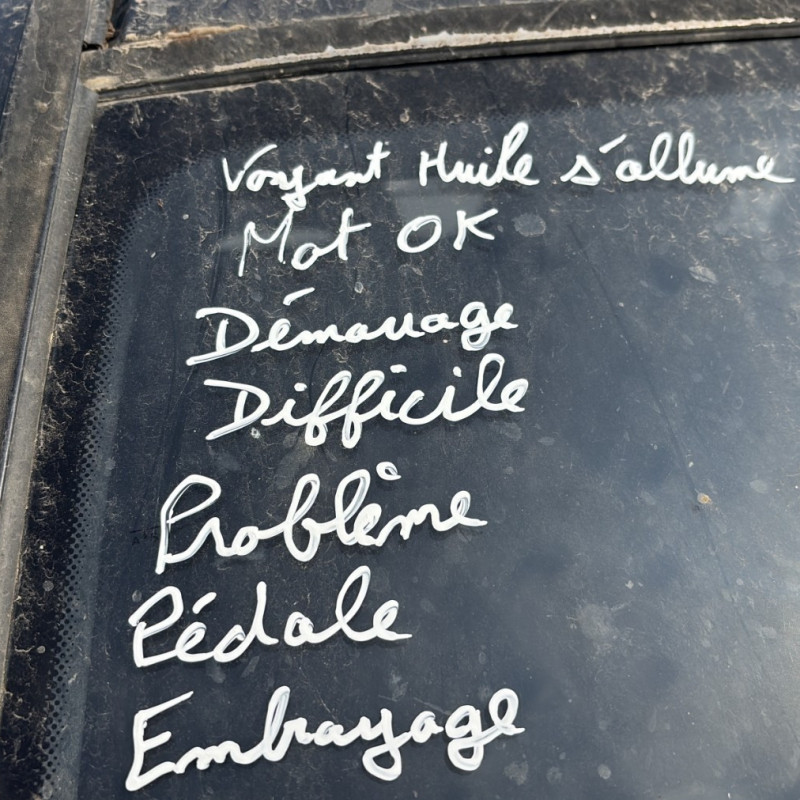 Voyant Huile s'allume
Mot OK
Démarrage
Difficile
Problème
Pédale
Embrayage